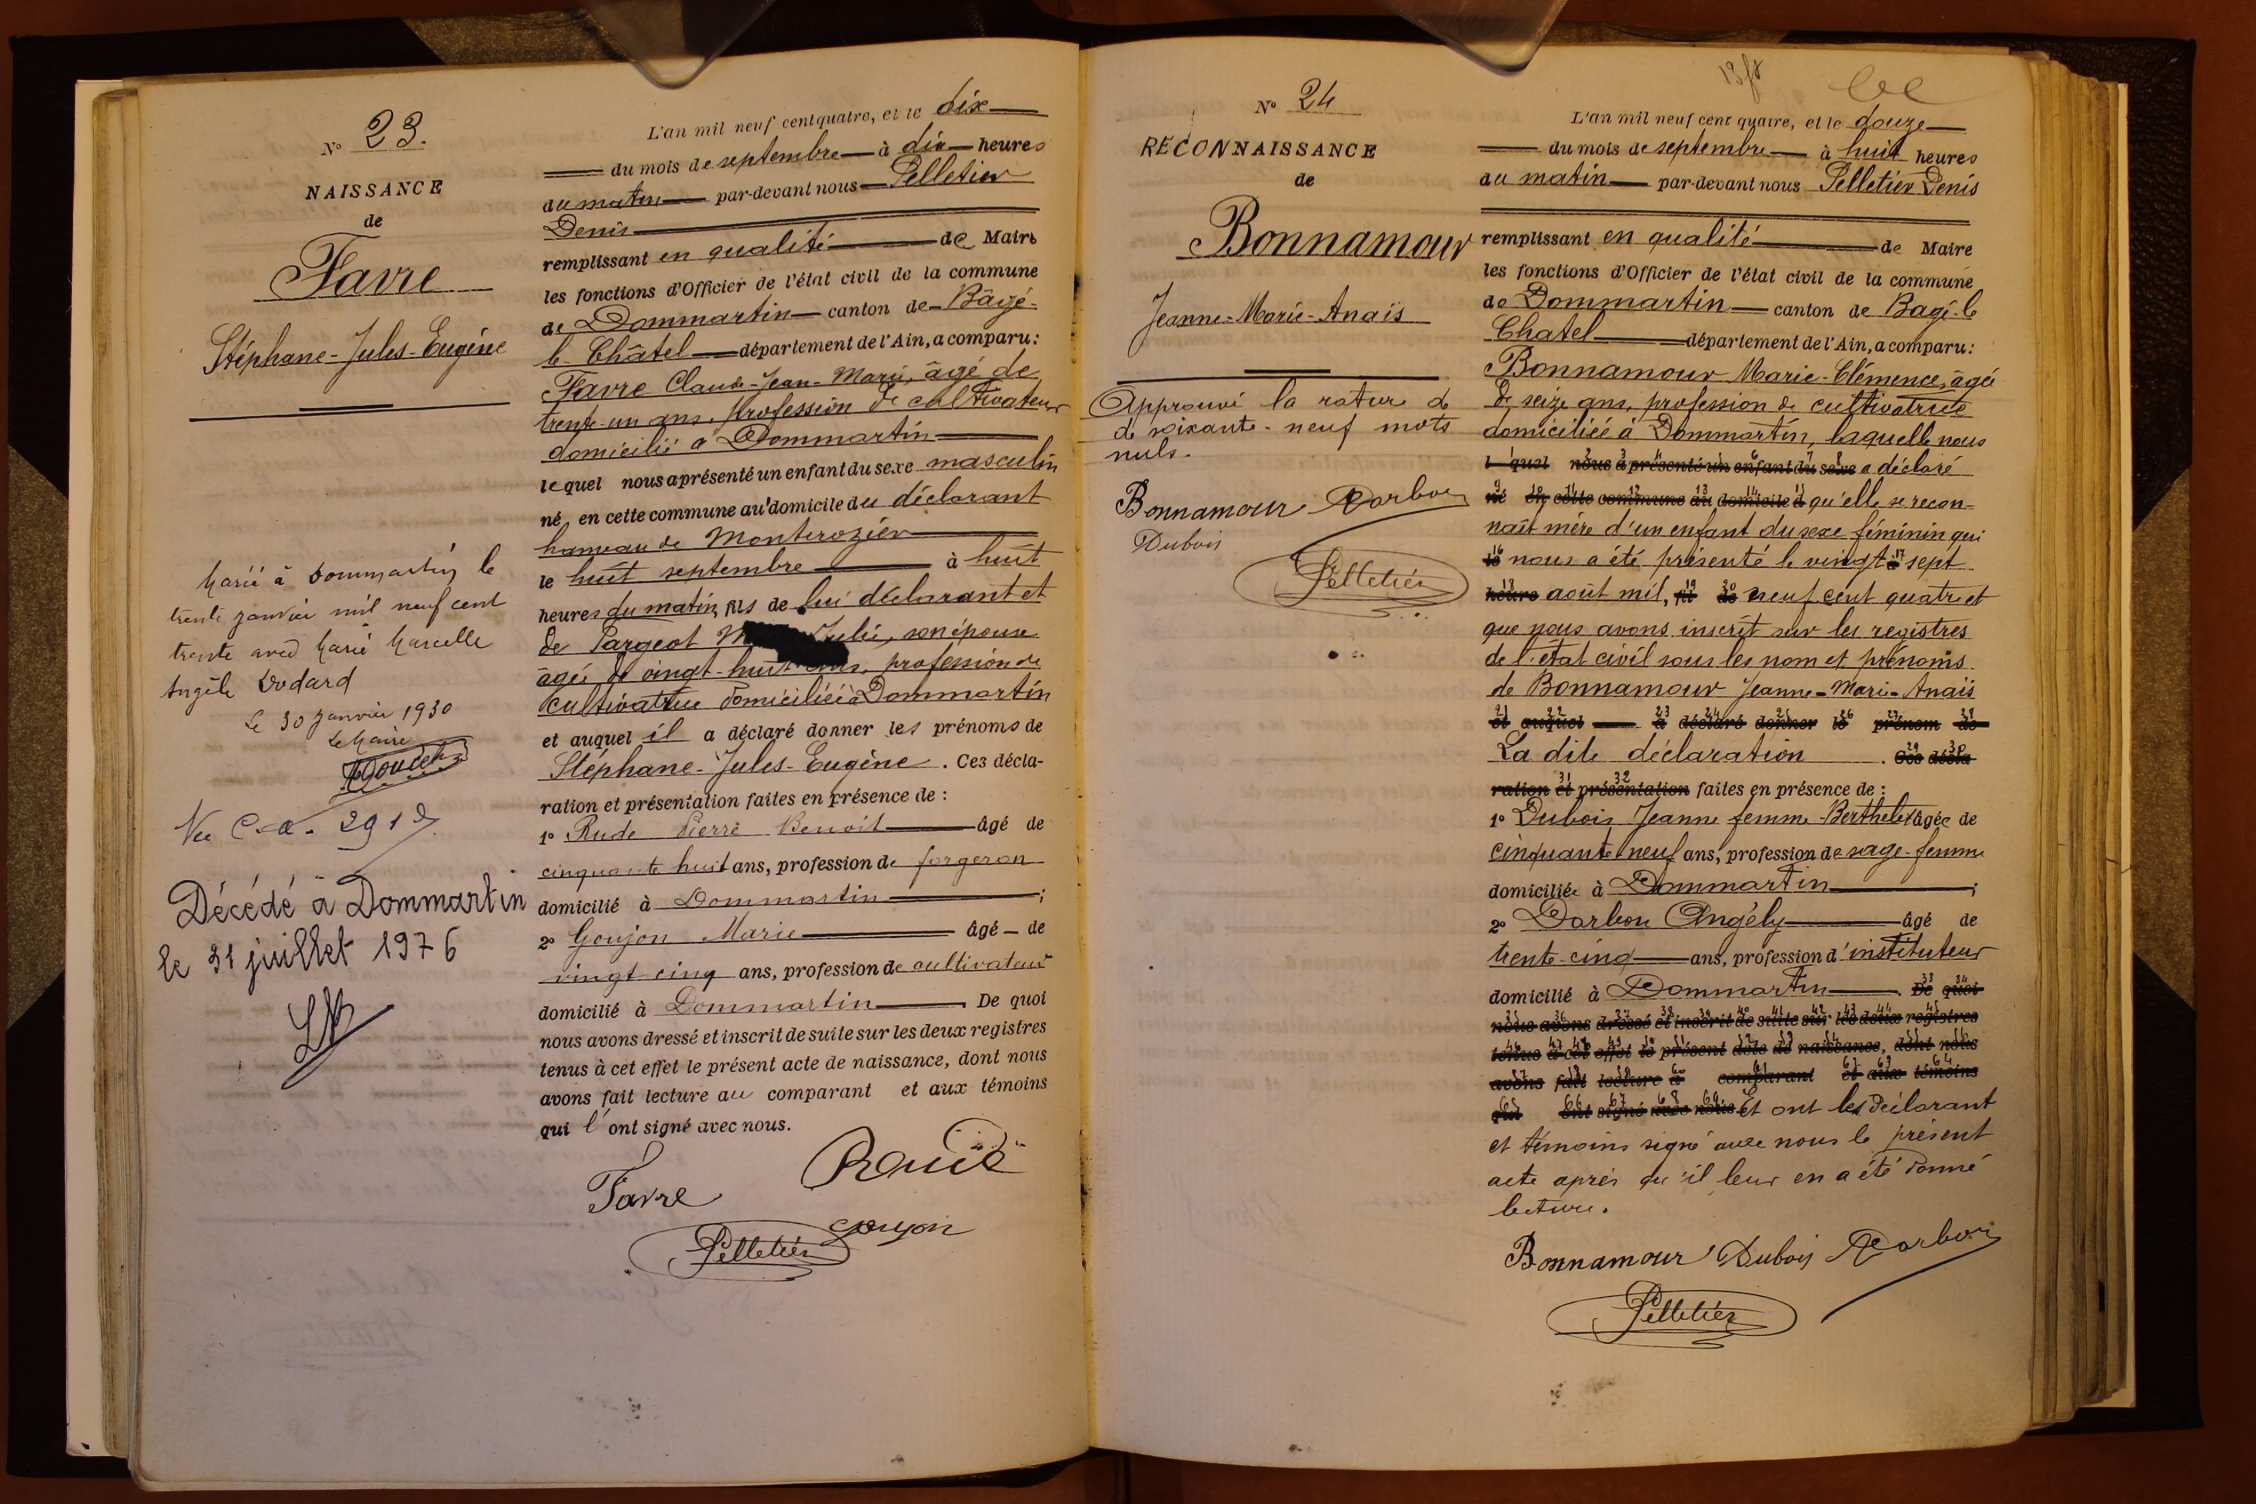 N° 23.
NAISSANCE
de
Favre
Stéphane-Jules-Eugène
Marié à Dommartin le
trente janvier mil neuf cent
trente avec Marie Marcelle
Angèle Dodard
Le 30 janvier 1930
Le Maire
Décédé à Dommartin
le 31 juillet 1976
L'an mil neuf cent quatre, et le dix
du mois de septembre à dix heures
du matin par-devant nous Pelletier
Denis
remplissant en qualité de Maire
les fonctions d'Officier de l'état civil de la commune
de Dommartin canton de Bâgé-
le Châtel département de l'Ain, a comparu:
Favre Claude-Jean-Marie, âgé de
trente-un ans, profession de cultivateur
domicilié à Dommartin
lequel nous a présenté un enfant du sexe masculin
né en cette commune au domicile du déclarant
hameau de Monterozier
le huit septembre à huit
heures du matin, fils de lui déclarant et
de Pargeot Julie, son épouse
âgée de vingt-huit ans, profession de
cultivatrice domiciliée à Dommartin
et auquel il a déclaré donner les prénoms de
Stéphane-Jules-Eugène. Ces décla-
ration et présentation faites en présence de :
1° Rude Pierre Benoit âgé de
cinquante huit ans, profession de forgeron
domicilié à Dommartin ;
2° Goujon Marie âgé de
vingt-cinq ans, profession de cultivateur
domicilié à Dommartin. De quoi
nous avons dressé et inscrit de suite sur les deux registres
tenus à cet effet le présent acte de naissance, dont nous
avons fait lecture au comparant et aux témoins
qui l'ont signé avec nous.
Favre
Goujon
Pelletier
N° 24
RECONNAISSANCE
de
Bonnamour
Jeanne-Marie-Anaïs
Approuvé la rature de
de soixante-neuf mots
nuls.
Bonnamour Darbon
Dubois
Pelletier
L'an mil neuf cent quatre, et le douze
du mois de septembre à huit heures
du matin par-devant nous Pelletier Denis
remplissant en qualité de Maire
les fonctions d'Officier de l'état civil de la commune
de Dommartin canton de Bagé-le
Chatel département de l'Ain, a comparu:
Bonnamour Marie-Clémence, âgée
de seize ans, profession de cultivatrice
domiciliée à Dommartin, laquelle nous
lequel nous a présenté un enfant du sexe a déclaré
né en cette commune au domicile d qu'elle se recon-
naît mère d'un enfant du sexe féminin qui
le nous a été présenté le vingt à sept
heure août mil, fil de neuf cent quatre et
que nous avons inscrit sur les registres
de l'état civil sous les nom et prénoms
de Bonnamour Jeanne-Marie-Anaïs
et auquel a déclaré donner le prénom de
La dite déclaration. Ces décla
ration et présentation faites en présence de :
1° Dubois Jeanne femme Berthelet âgée de
cinquante neuf ans, profession de sage-femme
domiciliée à Dommartin ;
2° Darbon Angély âgé de
trente-cinq ans, profession d'instituteur
domicilié à Dommartin. De quoi
nous avons dressé et inscrit de suite sur les deux registres
tenus à cet effet le présent acte de naissance, dont nous
avons fait lecture a comparant et aux témoins
qui ont signé avec nous Et ont les déclarant
et témoins signé avec nous le présent
acte après qu'il leur en a été donné
lecture.
Bonnamour Dubois Darbon
Pelletier